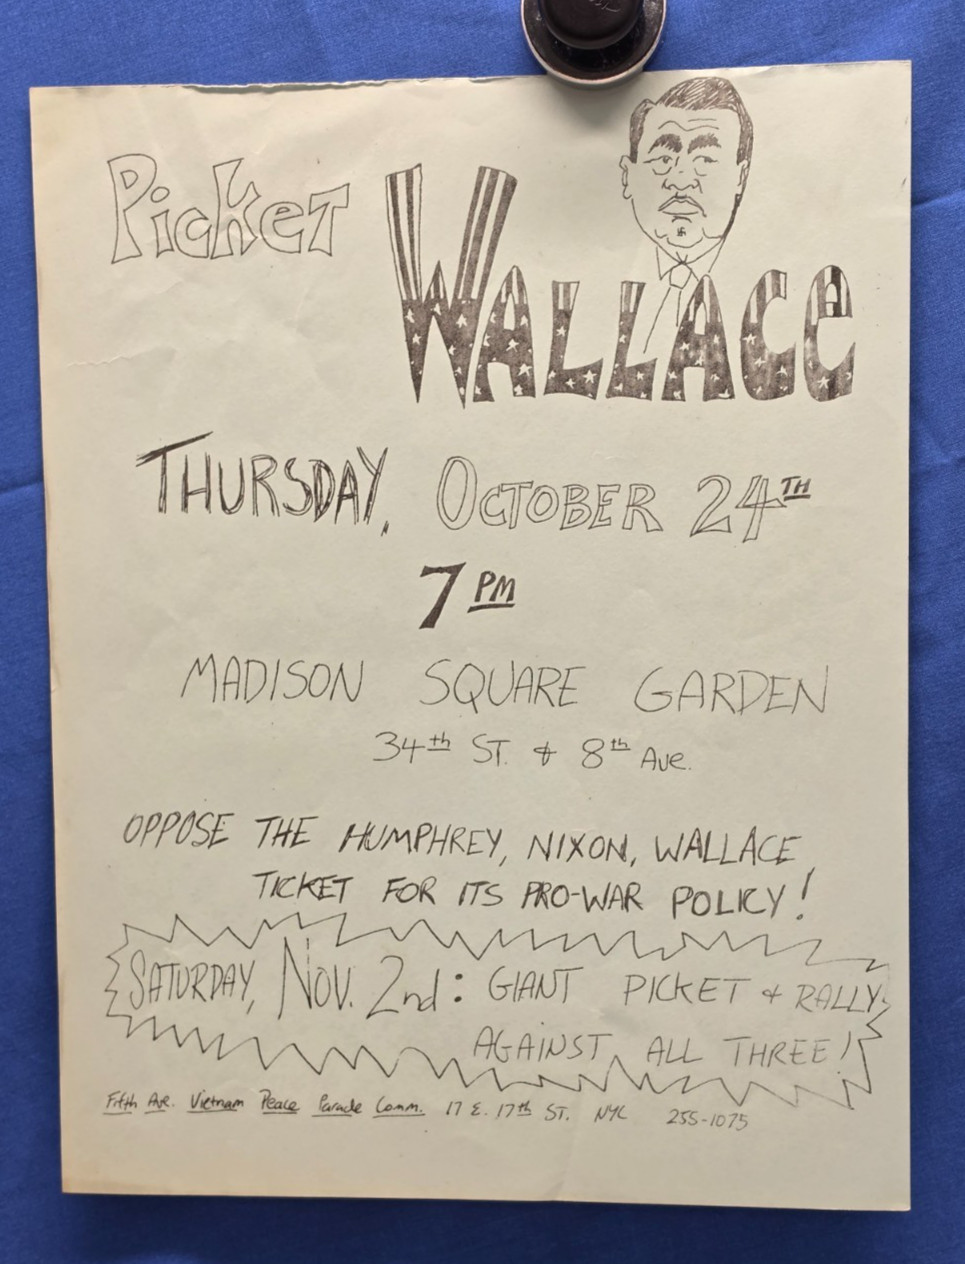 Picket
WALLACE
THURSDAY, OCTOBER 24TH
7 PM
MADISON SQUARE GARDEN
34th ST. & 8th Ave.
OPPOSE THE HUMPHREY, NIXON, WALLACE
TICKET FOR ITS PRO-WAR POLICY!
SATURDAY, NOV. 2nd: GIANT PICKET & RALLY
AGAINST ALL THREE!
Fifth Ave. Vietnam Peace Parade Comm. 17 E. 17th ST. NYC 255-1075